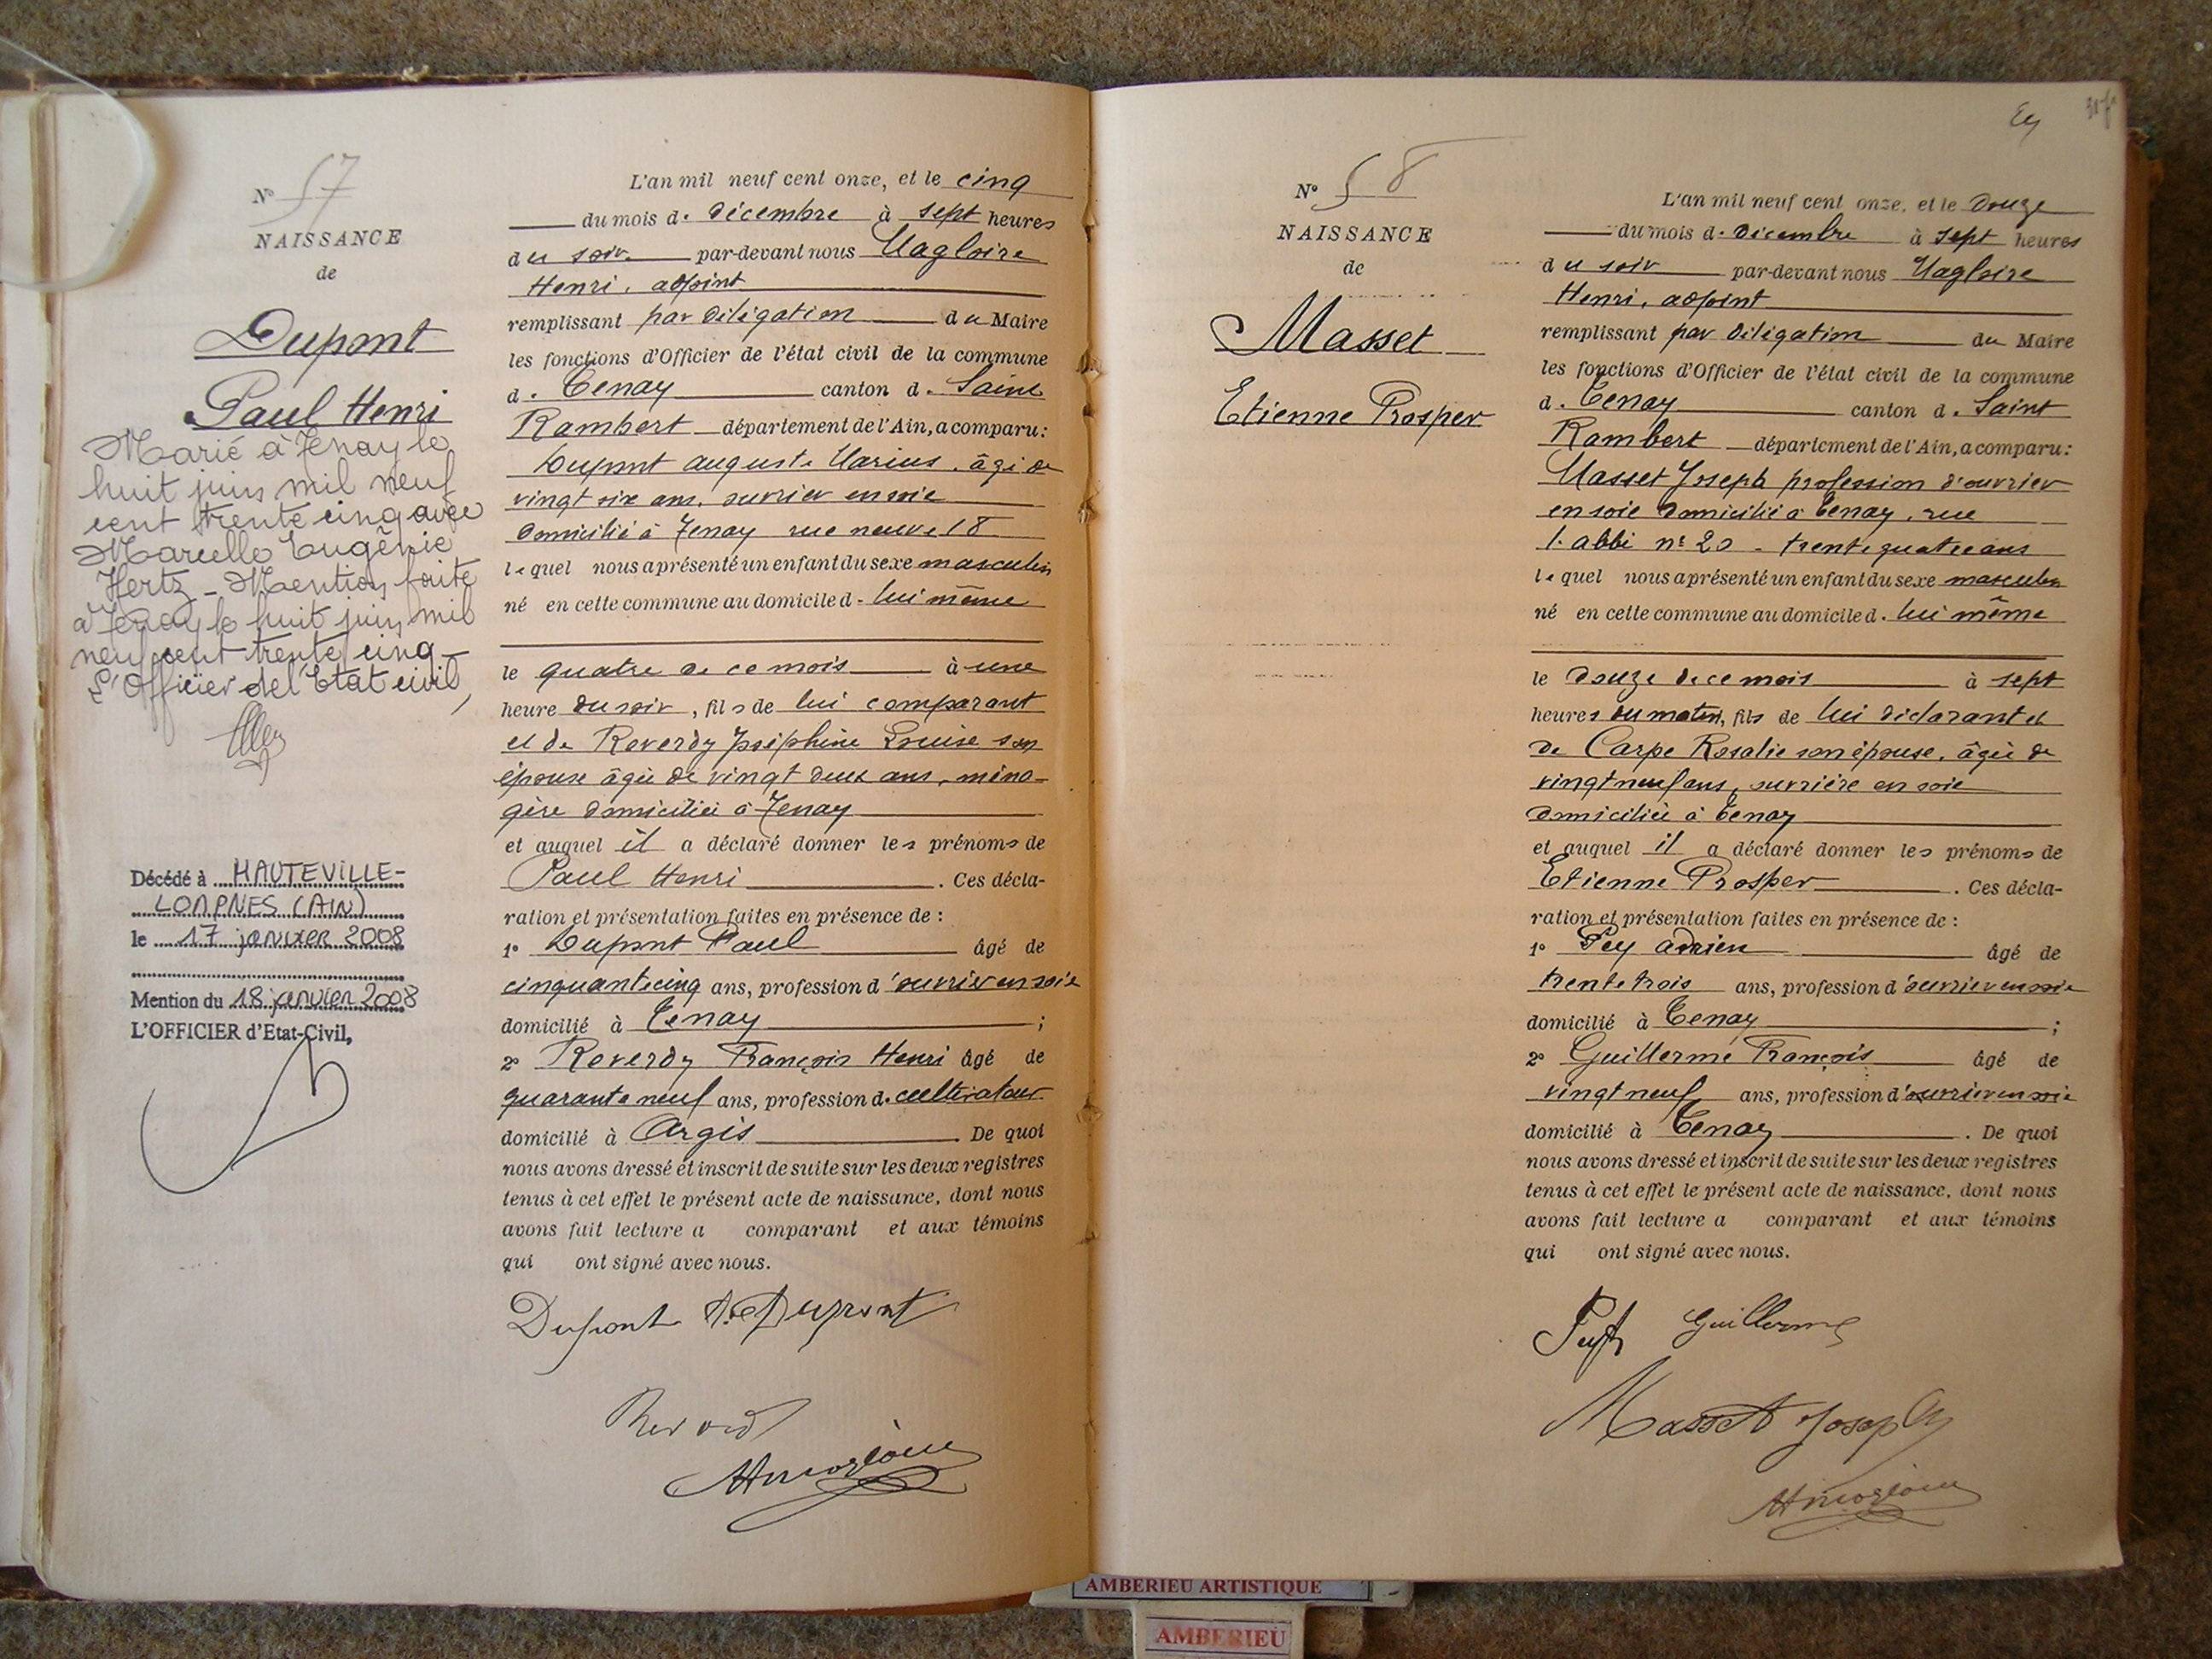 Nº 57
NAISSANCE
de
Dupont
Paul Henri
Marié à Tenay le
huit juin mil neuf
cent trente cinq avec
Marcelle Eugénie
Hertz - Mention faite
à Tenay le huit juin mil
neuf cent trente cinq -
L'Officier de l'Etat civil,
Décédé à HAUTEVILLE-
LOMPNES (AIN)
le 17 janvier 2008
Mention du 18 janvier 2008
L'OFFICIER d'Etat-Civil,
L'an mil neuf cent onze, et le cinq
du mois d. décembre à sept heures
du soir par-devant nous Magloire
Henri, adjoint
remplissant par délégation du Maire
les fonctions d'Officier de l'état civil de la commune
d. Tenay canton d. Saint
Rambert département de l'Ain, a comparu:
Dupont auguste Marius, âgé de
vingt six ans, ouvrier en soie
domicilié à Tenay rue neuve 18
lequel nous a présenté un enfant du sexe masculin
né en cette commune au domicile d. lui même
le quatre de ce mois à une
heure du soir, fils de lui comparant
et de Reverdy Joséphine Louise son
épouse âgée de vingt deux ans, ména-
gère domiciliée à Tenay
et auquel il a déclaré donner les prénoms de
Paul Henri. Ces décla-
ration et présentation faites en présence de :
1º Dupont Paul âgé de
cinquante cinq ans, profession d'ouvrier en soie
domicilié à Tenay ;
2º Reverdy François Henri âgé de
quarante neuf ans, profession d. cultivateur
domicilié à Argis. De quoi
nous avons dressé et inscrit de suite sur les deux registres
tenus à cet effet le présent acte de naissance, dont nous
avons fait lecture a comparant et aux témoins
qui ont signé avec nous.
Dupont A. Dupont
Reverdy
Nº 58
NAISSANCE
de
Masset
Etienne Prosper
L'an mil neuf cent onze, et le douze
du mois d. décembre à sept heures
du soir par-devant nous Magloire
Henri, adjoint
remplissant par délégation du Maire
les fonctions d'Officier de l'état civil de la commune
d. Tenay canton d. Saint
Rambert département de l'Ain, a comparu:
Masset Joseph profession d'ouvrier
en soie domicilié à Tenay, rue
l'abbé nº 20 - trente quatre ans
lequel nous a présenté un enfant du sexe masculin
né en cette commune au domicile d. lui même
le douze de ce mois à sept
heures du matin, fils de lui déclarant et
de Carpe Rosalie son épouse, âgée de
vingt neuf ans, ouvrière en soie
domiciliée à Tenay
et auquel il a déclaré donner les prénoms de
Etienne Prosper. Ces décla-
ration et présentation faites en présence de :
1º Pey adrien âgé de
trente trois ans, profession d'ouvrier en soie
domicilié à Tenay ;
2º Guillerme François âgé de
vingt neuf ans, profession d'ouvrier en soie
domicilié à Tenay. De quoi
nous avons dressé et inscrit de suite sur les deux registres
tenus à cet effet le présent acte de naissance, dont nous
avons fait lecture a comparant et aux témoins
qui ont signé avec nous.
Guillerme
Masset Joseph
AMBERIEU ARTISTIQUE
AMBERIEU